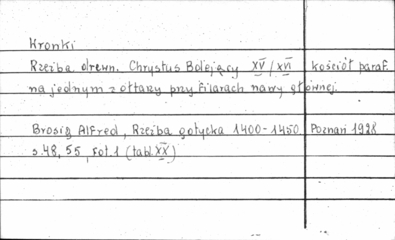 Kronki
Rzeźba drewn. Chrystus Bolejący XV/XVI kościół paraf.
na jednym z ołtarzy przy filarach nawy głównej.
Brosig Alfred, Rzeźba gotycka 1400-1450 Poznań 1928
s.48, 55, fot.1 (tabl. XX)